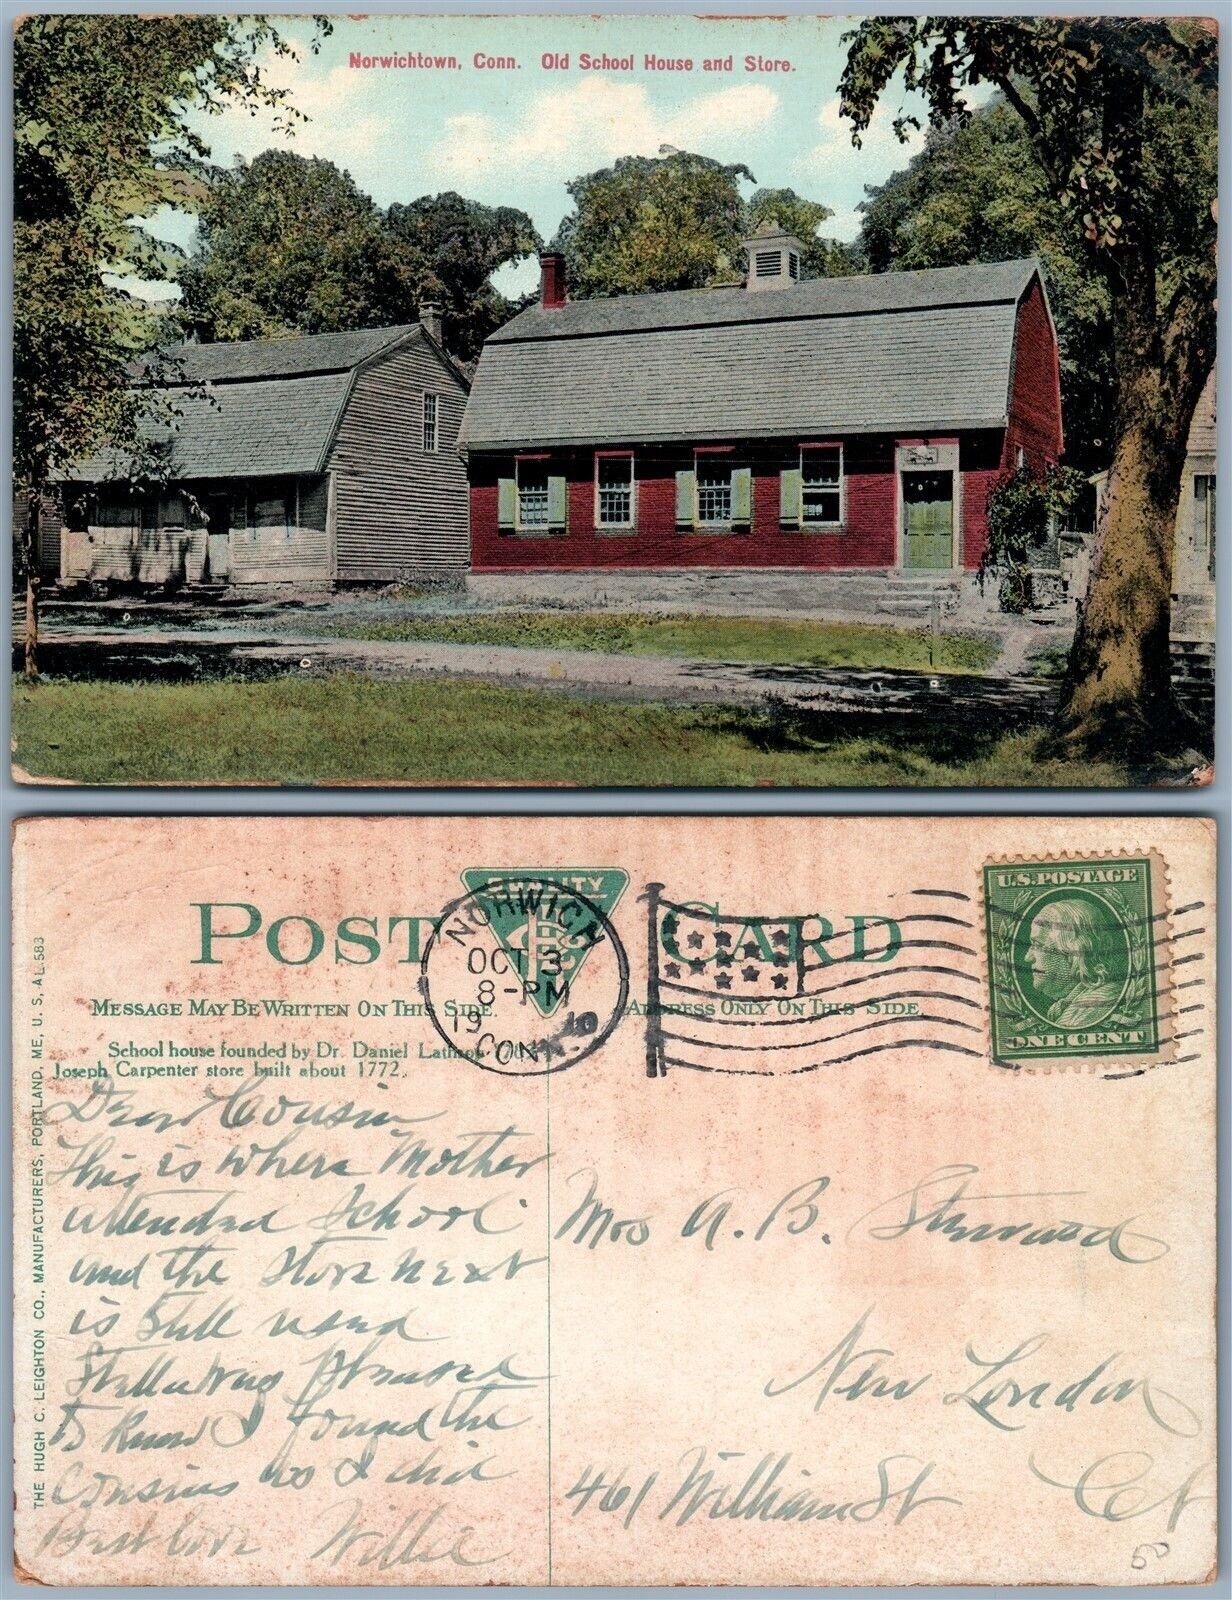 Norwichtown, Conn. Old School House and Store.
QUALITY
POST CARD
NORWICH
OCT 3
8-PM
1910
CONN.
U.S. POSTAGE
ONE CENT
MESSAGE MAY BE WRITTEN ON THIS SIDE.
ADDRESS ONLY ON THIS SIDE.
School house founded by Dr. Daniel Lathrop
Joseph Carpenter store built about 1772.
THE HUGH C. LEIGHTON CO., MANUFACTURERS, PORTLAND, ME., U. S. A.
Dear Cousin
This is where Mother
attended School
and the store next
is still used
pleased
to know I found the
Cousins as I did
Best love Willie
Mrs A. B.
New London
461 William St Ct
50